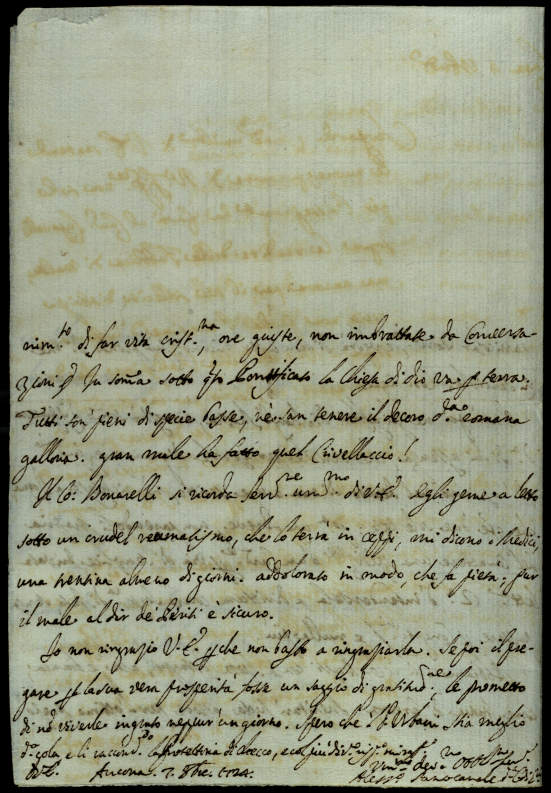 nim.to di far vita crist.na, ore giuste, non imbrattate da Conversa-
zioni In som̃a sotto q̃to Pontificato la Chiesa di dio va p terra.
Tutti son pieni di specie basse, nè san tenere il decoro d.a romana
galloria. gran male ha fatto quel Crivellaccio!
Il Co: Bonarelli si ricorda serv.re um.mo di V.E. Egli geme a letto
sotto un crudel reumatismo, che lo terrà in ceppi, mi dicono i Medici,
una trentina almeno di giorni. addolorato in modo, che fa pietà; pur
il male al dir de' Periti è sicuro.
Io non ringrazio V.E. p che non basto a ringraziarla. Se poi il pre-
gare p la sua vera prosperità fosse un saggio di gratitud.ne le prometto
di nõ viverle ingrato neppur un giorno. Spero che Urbani stia meglio
d.a gola, e li raccom.do la
V.E. Ancona 7. 8bre 1724.